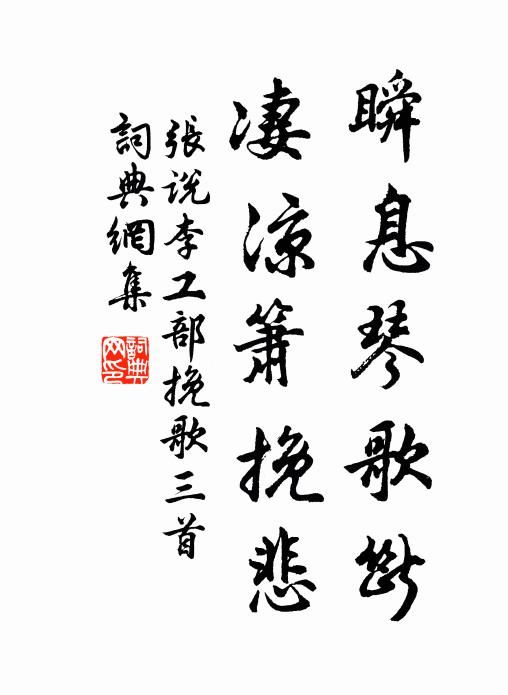 瞬息琴歌斷
凄涼簫挽悲
張说李工部挽歌三首
詞典網集
詞典网印